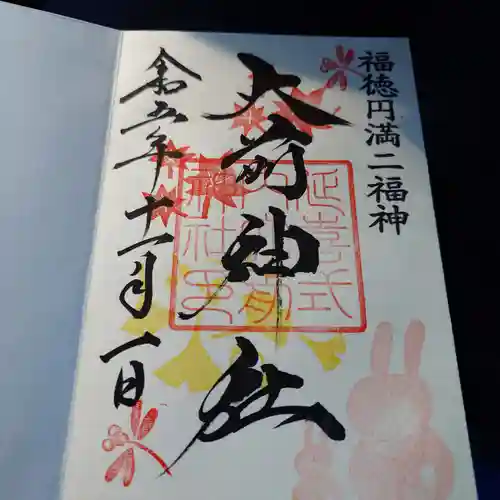 福徳円満二福神
大前神社
延喜式
内大前
神社印
令五年十一月一日